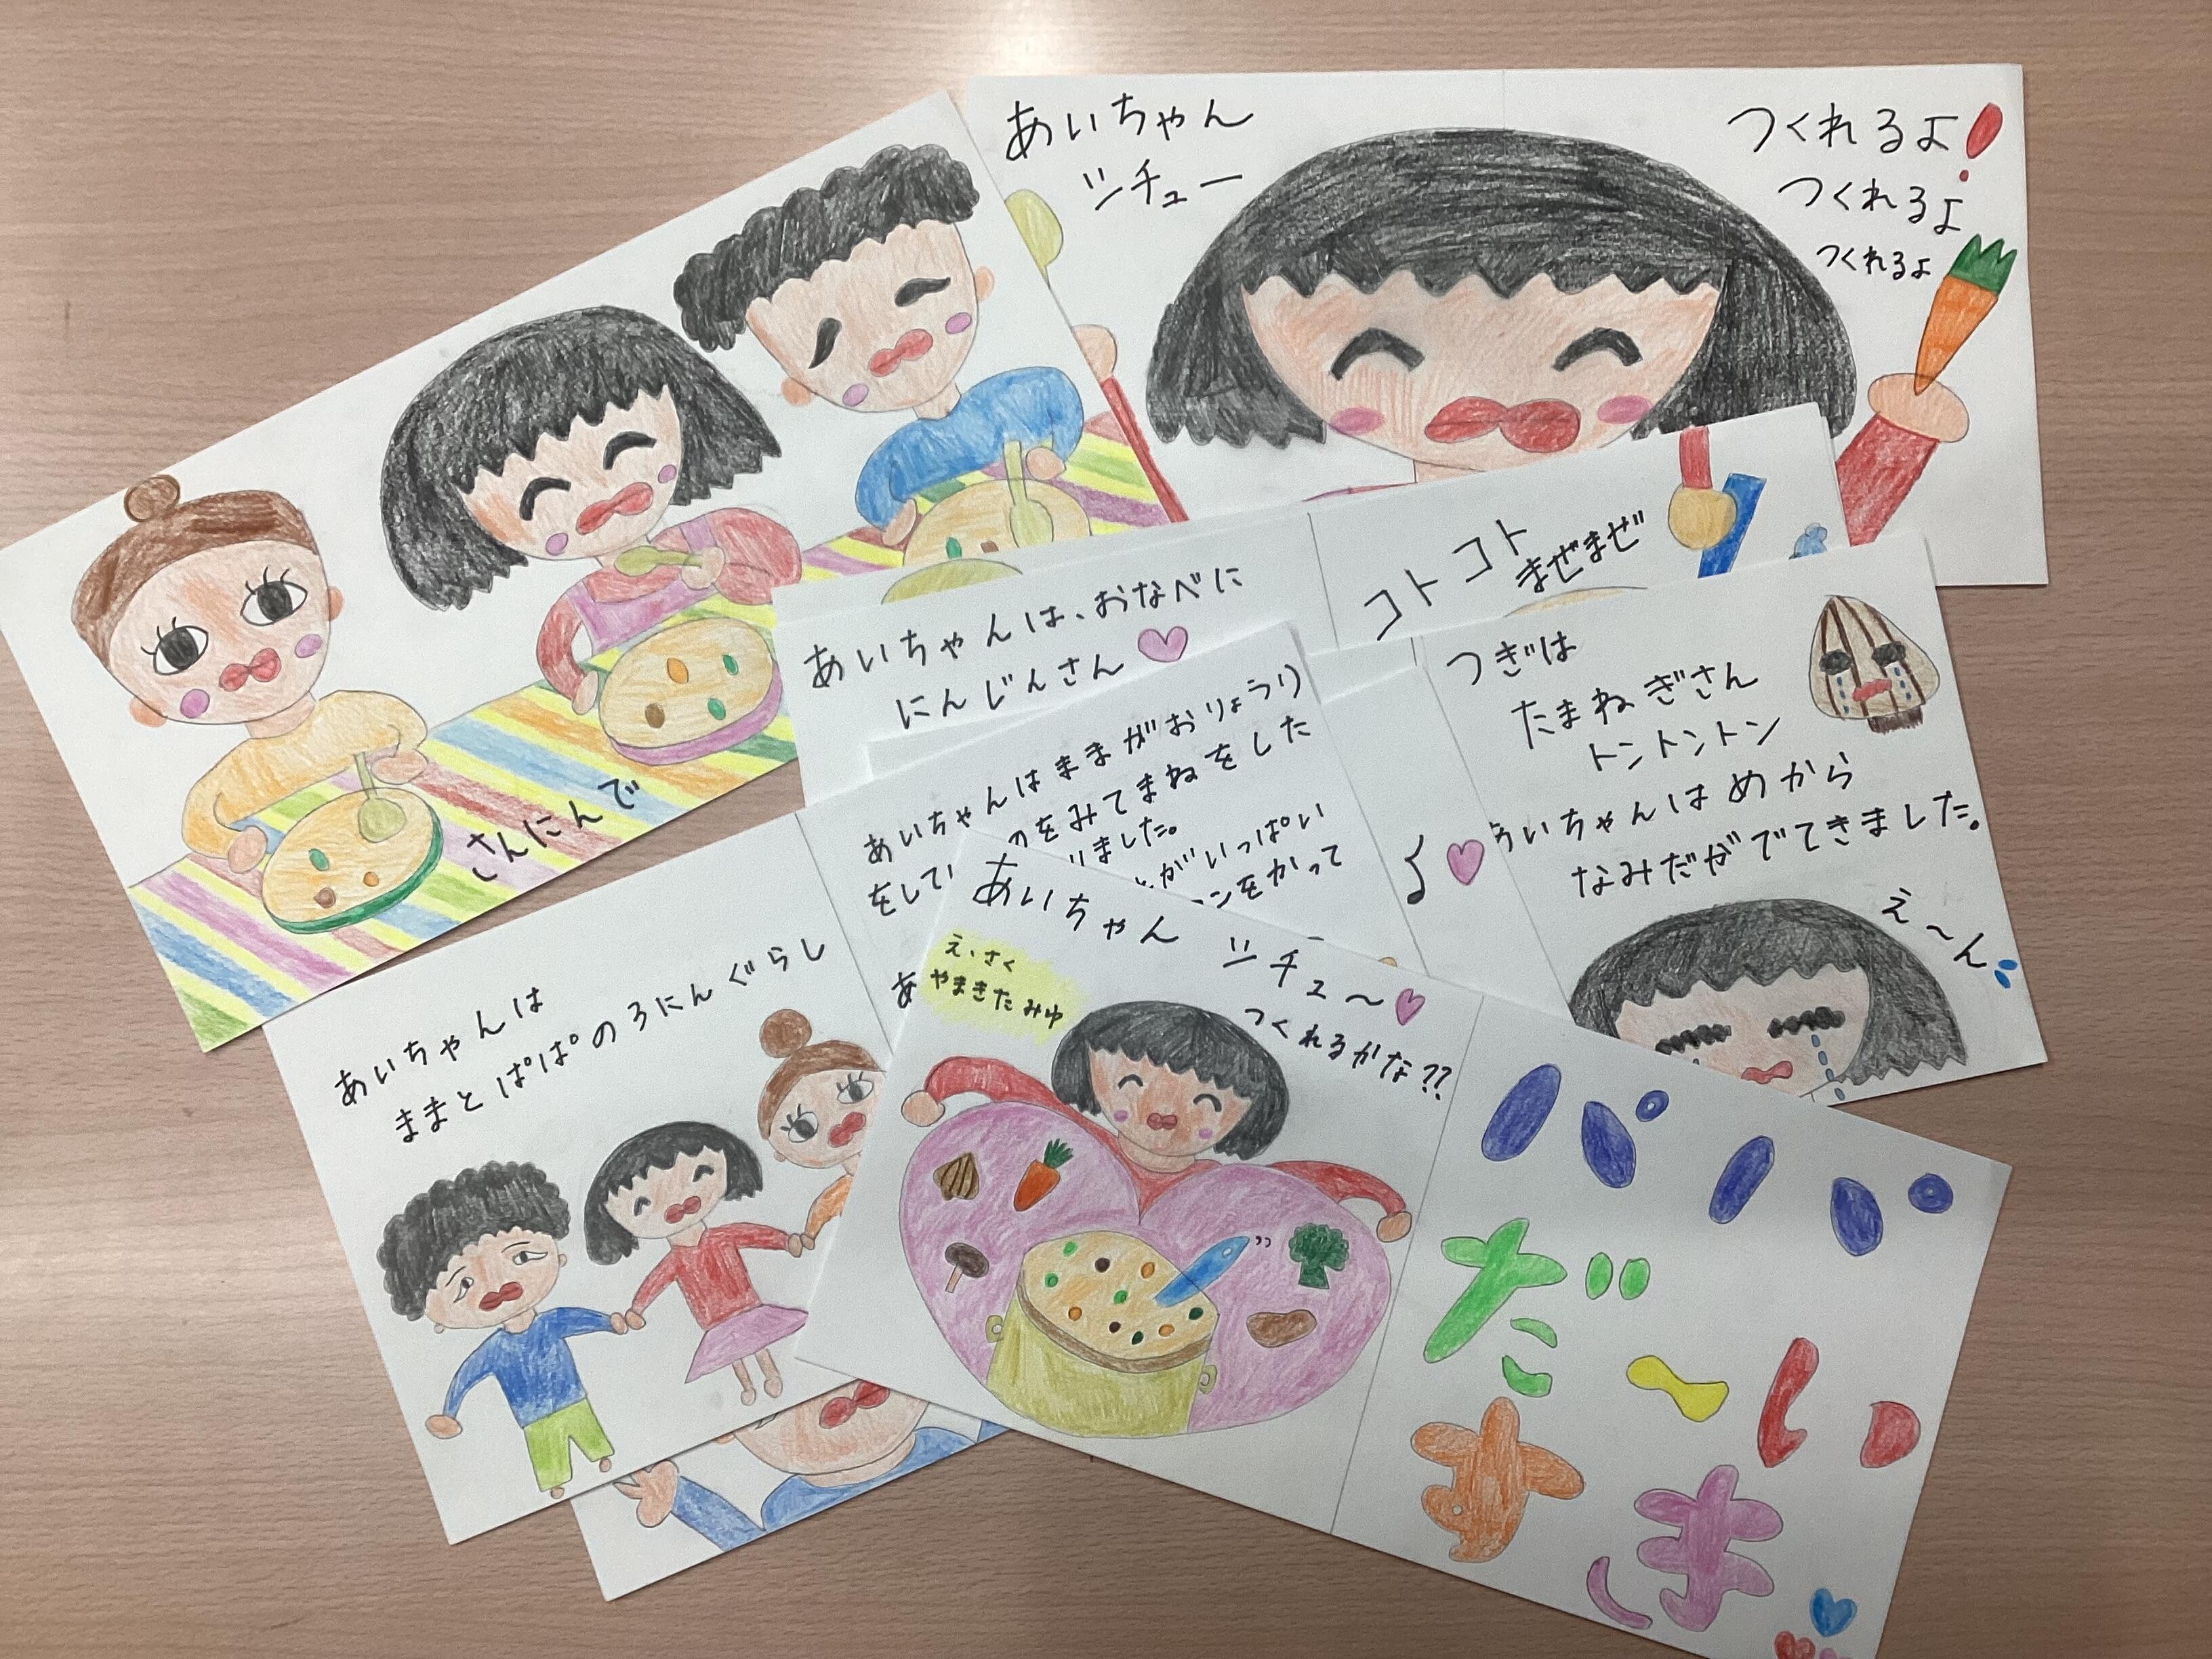 あいちゃん
シチュー
つくれるよ!
つくれるよ
つくれるよ
さんにんで
あいちゃんは、おなべに
にんじんさん
コトコト
まぜまぜ
つぎは
たまねぎさん
トントントン
いちゃんはめから
なみだがでてきました。
え〜ん
あいちゃんはままがおりょうり
のをみてまねをした
をして
りました。
がいっぱい
ンをかって
あ
あいちゃんは
ままとぱぱの3にんぐらし
あいちゃん
シチュ〜
つくれるかな??
え、さく
やまきたみゆ
パパ
だーい
すき